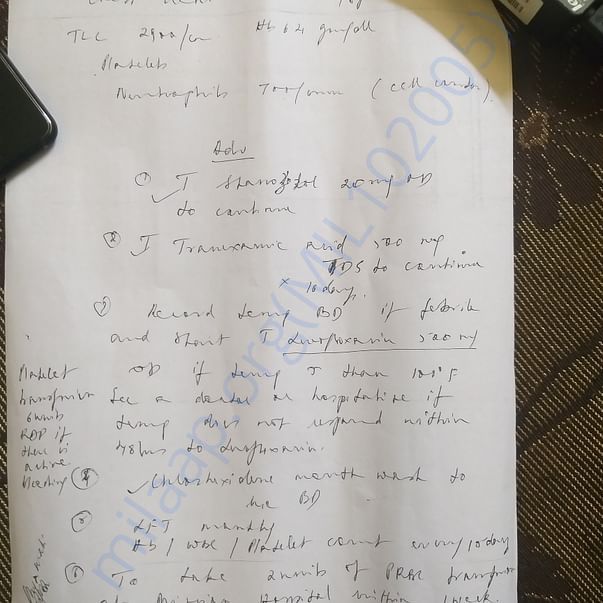 TLC 2900/cu Hb 6.4 gm/dll
Platelets
Neutrophils 700/cumm (cell counter).
Adv
① T Stanozolol 20 mg OD
to continue
② T Tranexamic acid 500 mg
TDS to continue
x 10 days.
③ Record temp BD if febrile
and start T Levofloxacin 500 mg
OD if temp ↑ than 100°F
See a doctor or hospitalise if
temp does not respond within
48 hrs to Levofloxacin.
Platelet
transfusion
6 units
RDP if
there is
active
bleeding
④ Chlorhexidine mouth wash to
use BD
⑤ LFT monthly
Hb / WBC / Platelet count every 10 days
⑥ To take 2 units of PRBC transfusion
hospital within 1 week.
milaap.org(MIL102005)